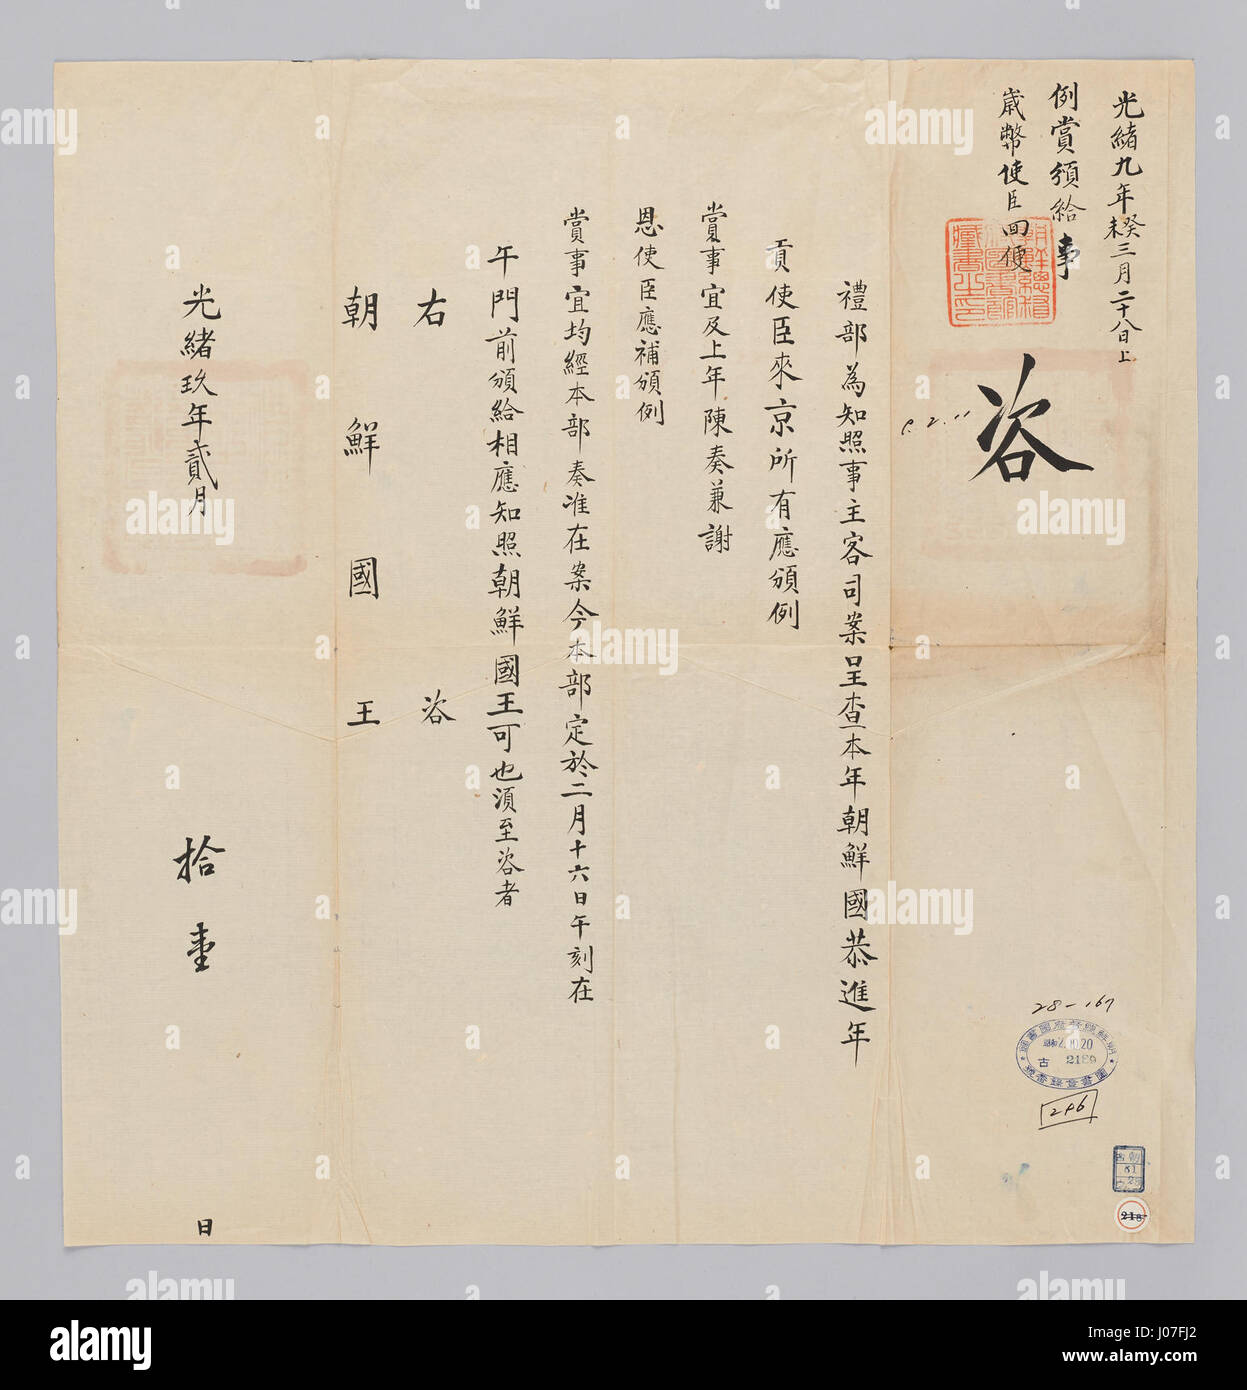 光緒九年癸未三月二十八日上
例賞頒給事
歲幣使臣回便
咨
禮部為知照事主客司案呈查本年朝鮮國恭進年
貢使臣來京所有應頒例
賞事宜及上年陳奏兼謝
恩使臣應補頒例
賞事宜均經本部奏准在案今本部定於二月十六日午刻在
午門前頒給相應知照朝鮮國王可也須至咨者
右咨
朝鮮國王
光緒玖年貳月拾壹日
28-167
朝鮮總督府圖書館
10.20
古 2189
圖書登錄番號
296
朝
古
61
218
alamy
Image ID: J07FJ2
www.alamy.com